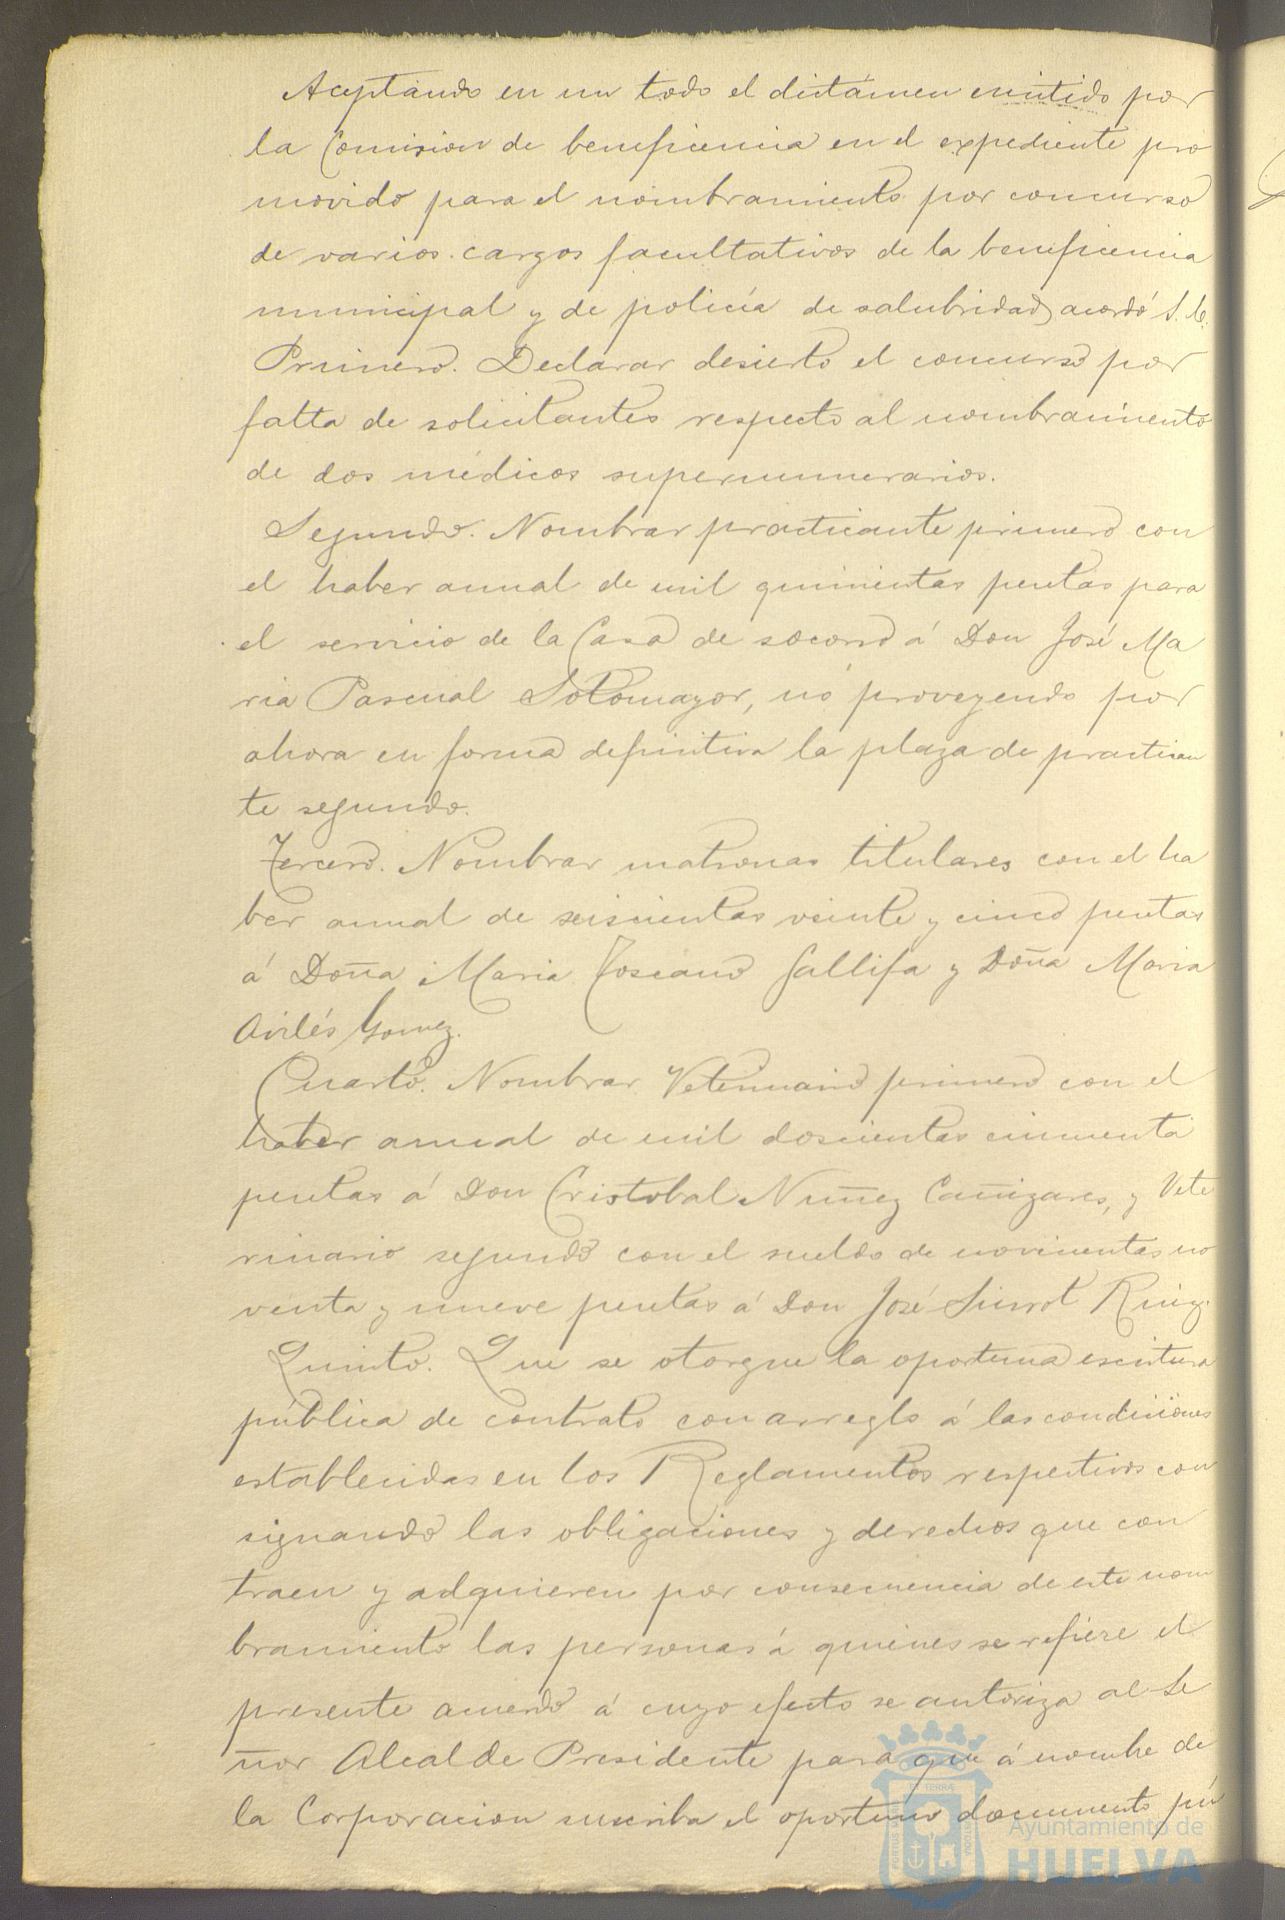 Aceptando en un todo el dictámen emitido por
la Comision de beneficencia en el expediente pro
movido para el nombramiento por concurso
de varios cargos facultativos de la beneficencia
municipal y de policía de salubridad, acordó S. E.
Primero. Declarar desierto el concurso por
falta de solicitantes respecto al nombramiento
de dos médicos supernumerarios.
Segundo. Nombrar practicante primero con
el haber anual de mil quinientas pesetas para
el servicio de la Casa de socorro á Don José Ma
ria Pascual Sotomayor, no proveyendo por
ahora en forma definitiva la plaza de practican
te segundo.
Tercero. Nombrar matronas titulares con el ha
ber anual de seiscientas veinte y cinco pesetas
á Doña Maria Toscano Gallifa y Doña Maria
Avilés Gomez.
Cuarto. Nombrar Veterinario primero con el
haber anual de mil doscientas cincuenta
pesetas á Don Cristobal Nuñez Cañizares, y Vete
rinario segundo con el sueldo de novecientas no
venta y nueve pesetas á Don José Ruiz.
Quinto. Que se otorgue la oportuna escritura
pública de contrato con arreglo á las condiciones
establecidas en los Reglamentos respectivos con
signando las obligaciones y derechos que con
traen y adquieren por consecuencia de este nom
bramiento las personas á quienes se refiere el
presente acuerdo á cuyo efecto se autoriza al Se
ñor Alcalde Presidente para que á nombre de
la Corporacion suscriba el oportuno documento pú
Ayuntamiento de
HUELVA